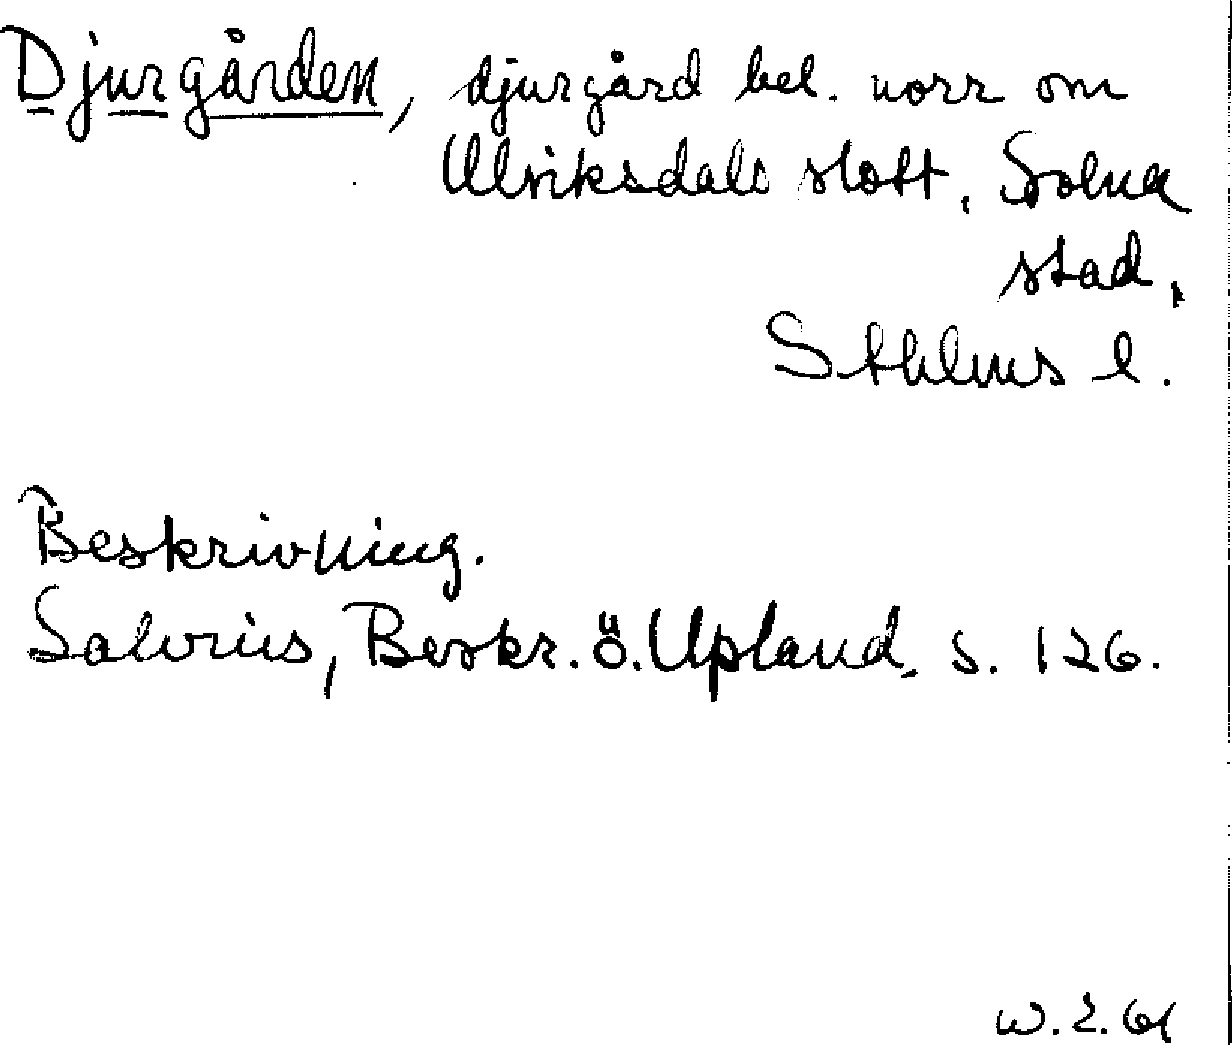 Djurgården, djurgård bel. norr om
Ulriksdals slott, Solna
stad,
Sthlms l.
Beskrivning.
Salvius, Beskr. ö. Upland, s. 126.
W. E. 61